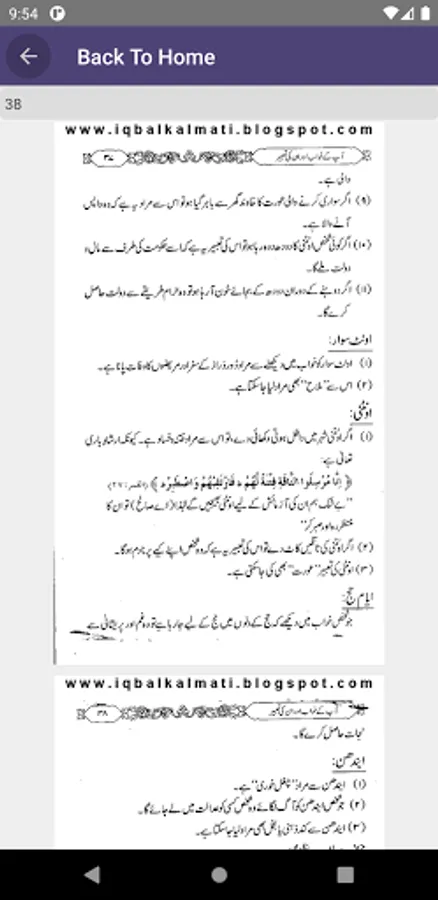 9:54
Back To Home
38
www.iqbalkalmati.blogspot.com
۳۷ آپ کے خواب اور ان کی تعبیر
والی ہے۔
(۹) اگر سواری کرنے والی عورت کا خاوند گھر سے باہر گیا ہو تو اس سے مراد یہ ہے کہ وہ واپس
آنے والا ہے۔
(۱۰) اگر کوئی شخص اونٹنی کا دودھ دوہ رہا ہو تو اس کی تعبیر یہ ہے کہ اسے حکومت کی طرف سے مال و
دولت ملے گا۔
(۱۱) اگر دوہنے کے دوران دودھ کے بجائے خون آ رہا ہو تو وہ حرام طریقے سے دولت حاصل
کرے گا۔
اونٹ سوار:
(۱) اونٹ سوار کو خواب میں دیکھنے سے مراد دور دراز کے سفر اور مریضوں کا وفات پانا ہے۔
(۲) اس سے "ملاح" بھی مراد لیا جا سکتا ہے۔
اونٹنی:
(۱) اگر اونٹنی شہر میں داخل ہوتی دکھائی دے، تو اس سے مراد فتنہ و فساد ہے۔ کیونکہ ارشاد باری
تعالیٰ ہے:
﴿ اِنَّا مُرْسِلُوا النَّاقَةِ فِتْنَةً لَّهُمْ فَارْتَقِبْهُمْ وَاصْطَبِرْ ﴾ (القمر: ۲۷)
"بے شک ہم ان کی آزمائش کے لیے اونٹنی بھیجیں گے لہٰذا (اے صالح) تو ان کا
منتظر رہ اور صبر کر"
(۲) اگر اونٹنی کی ٹانگیں کاٹ دے تو اس کی تعبیر یہ ہے کہ وہ شخص اپنے کیے پر نادم ہوگا۔
(۳) اونٹنی کی تعبیر "عورت" بھی کی جا سکتی ہے۔
ایام حج:
جو شخص خواب میں دیکھے کہ حج کے دنوں میں حج کے لیے جا رہا ہے تو وہ غم اور پریشانی سے
www.iqbalkalmati.blogspot.com
۳۸ آپ کے خواب اور ان کی تعبیر
نجات حاصل کرے گا۔
ایندھن:
(۱) ایندھن سے مراد "چغل خوری" ہے۔
(۲) جو شخص ایندھن کو آگ لگائے وہ شخص کسی کو عدالت میں لے جائے گا۔
(۳) ایندھن سے کند ذہنی یا بخل بھی مراد لیا جا سکتا ہے۔